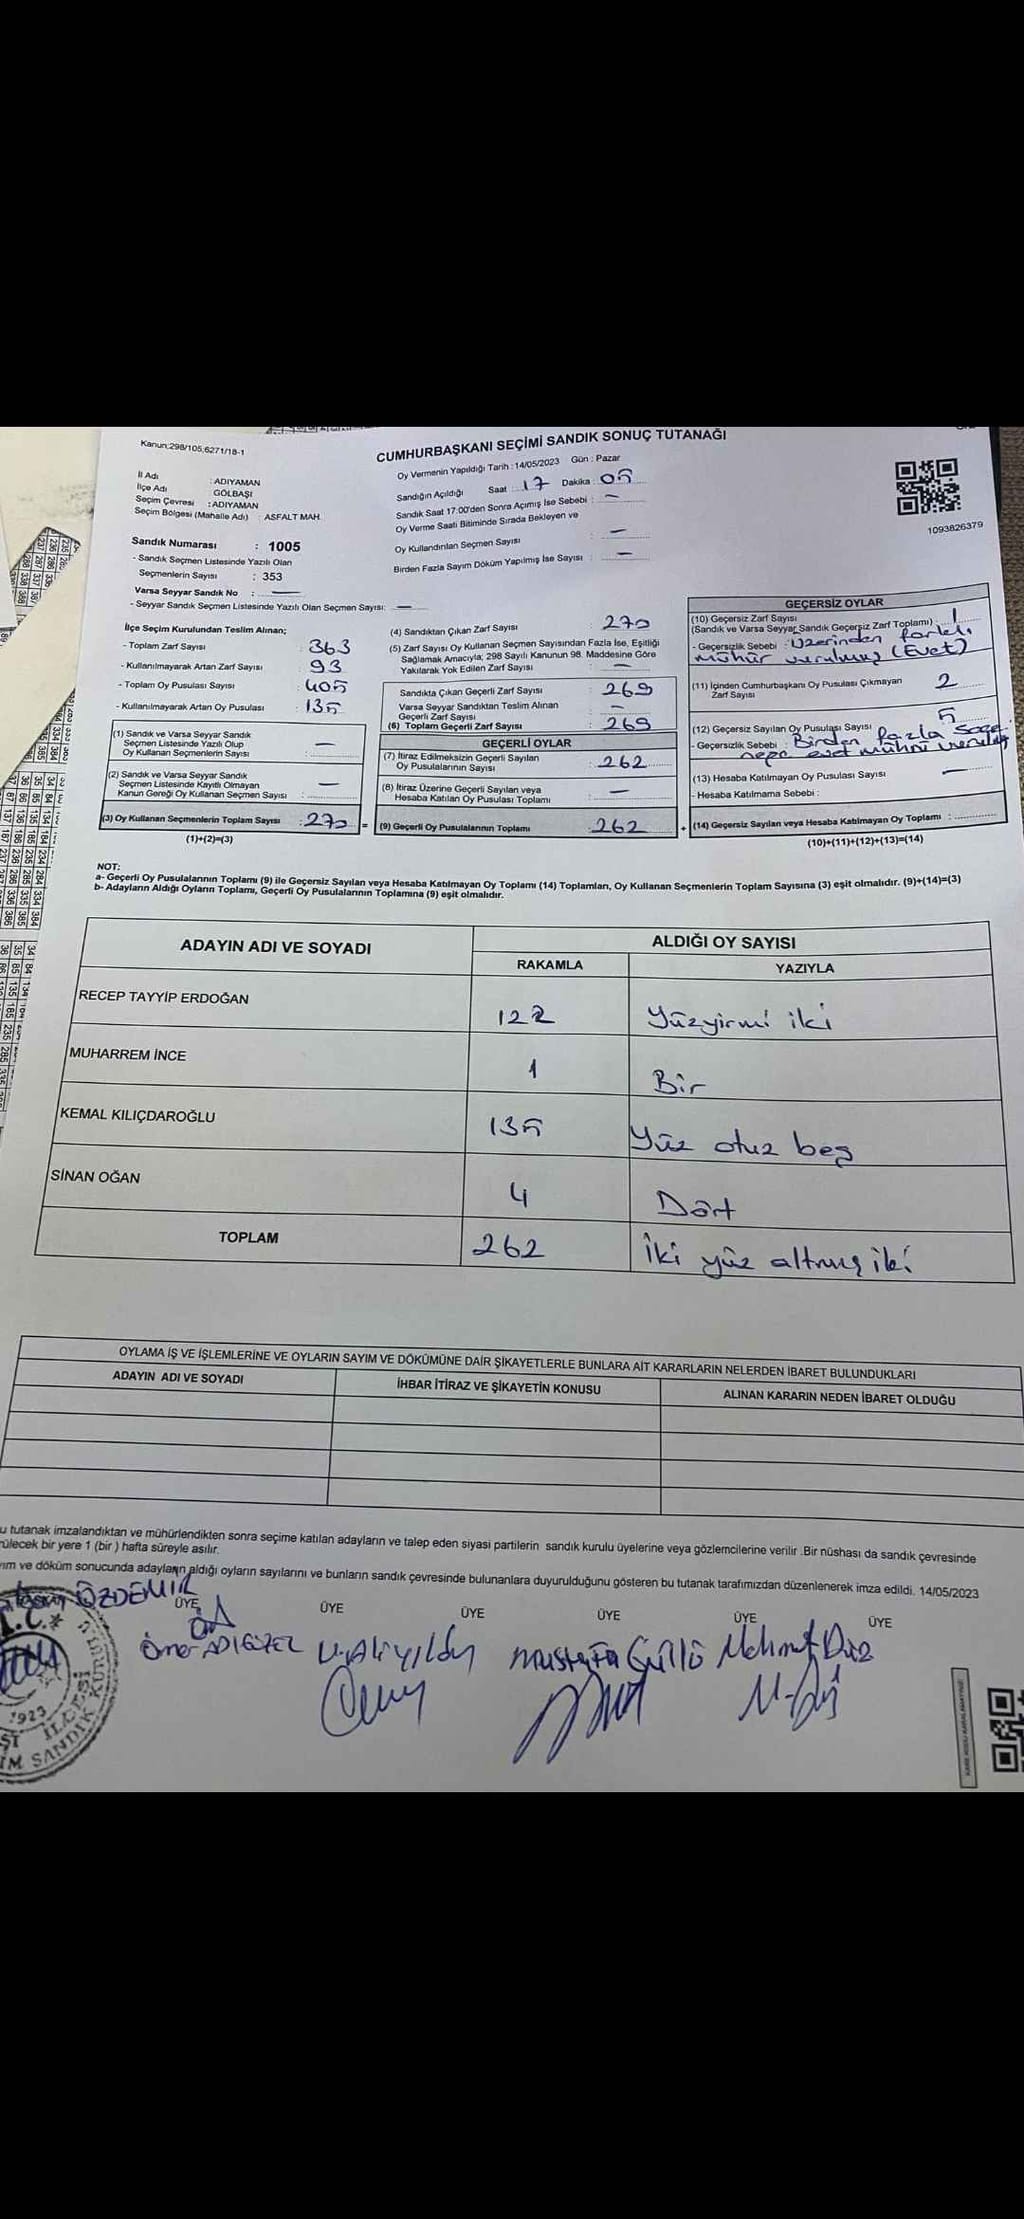 Kanun:298/105,6271/18-1
CUMHURBAŞKANI SEÇİMİ SANDIK SONUÇ TUTANAĞI
Oy Vermenin Yapıldığı Tarih : 14/05/2023 Gün : Pazar
İl Adı : ADIYAMAN
İlçe Adı GÖLBAŞI
Seçim Çevresi : ADIYAMAN
Seçim Bölgesi (Mahalle Adı) : ASFALT MAH.
Sandığın Açıldığı Saat : 17 Dakika : 05
Sandık Saat 17:00'den Sonra Açılmış İse Sebebi : —
Oy Verme Saati Bitiminde Sırada Bekleyen ve
Oy Kullandırılan Seçmen Sayısı : —
Birden Fazla Sayım Döküm Yapılmış İse Sayısı : —
1093826379
Sandık Numarası : 1005
- Sandık Seçmen Listesinde Yazılı Olan
Seçmenlerin Sayısı : 353
Varsa Seyyar Sandık No : —
- Seyyar Sandık Seçmen Listesinde Yazılı Olan Seçmen Sayısı: —
İlçe Seçim Kurulundan Teslim Alınan;
- Toplam Zarf Sayısı : 363
- Kullanılmayarak Artan Zarf Sayısı : 93
- Toplam Oy Pusulası Sayısı : 405
- Kullanılmayarak Artan Oy Pusulası : 135
(1) Sandık ve Varsa Seyyar Sandık
Seçmen Listesinde Yazılı Olup
Oy Kullanan Seçmenlerin Sayısı : —
(2) Sandık ve Varsa Seyyar Sandık
Seçmen Listesinde Kayıtlı Olmayan
Kanun Gereği Oy Kullanan Seçmen Sayısı : —
(3) Oy Kullanan Seçmenlerin Toplam Sayısı : 270 =
(1)+(2)=(3)
(4) Sandıktan Çıkan Zarf Sayısı : 270
(5) Zarf Sayısı Oy Kullanan Seçmen Sayısından Fazla İse, Eşitliği
Sağlamak Amacıyla; 298 Sayılı Kanunun 98. Maddesine Göre
Yakılarak Yok Edilen Zarf Sayısı : —
Sandıkta Çıkan Geçerli Zarf Sayısı : 269
Varsa Seyyar Sandıktan Teslim Alınan
Geçerli Zarf Sayısı : —
(6) Toplam Geçerli Zarf Sayısı : 269
GEÇERLİ OYLAR
(7) İtiraz Edilmeksizin Geçerli Sayılan
Oy Pusulalarının Sayısı : 262
(8) İtiraz Üzerine Geçerli Sayılan veya
Hesaba Katılan Oy Pusulası Toplamı : —
(9) Geçerli Oy Pusulalarının Toplamı : 262 +
GEÇERSİZ OYLAR
(10) Geçersiz Zarf Sayısı
(Sandık ve Varsa Seyyar Sandık Geçersiz Zarf Toplamı) : 1
- Geçersizlik Sebebi : Üzerinden farklı
mühür vurulmuş (Evet)
(11) İçinden Cumhurbaşkanı Oy Pusulası Çıkmayan
Zarf Sayısı 2
(12) Geçersiz Sayılan Oy Pusulası Sayısı : 5
- Geçersizlik Sebebi : Birden fazla
evet mührü
(13) Hesaba Katılmayan Oy Pusulası Sayısı —
- Hesaba Katılmama Sebebi :
(14) Geçersiz Sayılan veya Hesaba Katılmayan Oy Toplamı :
(10)+(11)+(12)+(13)=(14)
NOT:
a- Geçerli Oy Pusulalarının Toplamı (9) ile Geçersiz Sayılan veya Hesaba Katılmayan Oy Toplamı (14) Toplamları, Oy Kullanan Seçmenlerin Toplam Sayısına (3) eşit olmalıdır. (9)+(14)=(3)
b- Adayların Aldığı Oyların Toplamı, Geçerli Oy Pusulalarının Toplamına (9) eşit olmalıdır.
ADAYIN ADI VE SOYADI ALDIĞI OY SAYISI
RAKAMLA YAZIYLA
RECEP TAYYİP ERDOĞAN 122 Yüzyirmi iki
MUHARREM İNCE 1 Bir
KEMAL KILIÇDAROĞLU 135 Yüz otuz beş
SİNAN OĞAN 4 Dört
TOPLAM 262 İki yüz altmış iki
OYLAMA İŞ VE İŞLEMLERİNE VE OYLARIN SAYIM VE DÖKÜMÜNE DAİR ŞİKAYETLERLE BUNLARA AİT KARARLARIN NELERDEN İBARET BULUNDUKLARI
ADAYIN ADI VE SOYADI İHBAR İTİRAZ VE ŞİKAYETİN KONUSU ALINAN KARARIN NEDEN İBARET OLDUĞU
u tutanak imzalandıktan ve mühürlendikten sonra seçime katılan adayların ve talep eden siyasi partilerin sandık kurulu üyelerine veya gözlemcilerine verilir .Bir nüshası da sandık çevresinde
rülecek bir yere 1 (bir ) hafta süreyle asılır.
ım ve döküm sonucunda adayların aldığı oyların sayılarını ve bunların sandık çevresinde bulunanlara duyurulduğunu gösteren bu tutanak tarafımızdan düzenlenerek imza edildi. 14/05/2023
ÖZDEMİR
ÜYE ÜYE ÜYE ÜYE ÜYE ÜYE
Ömer ADIGÜZEL Ali Yıldız Mustafa Güllü Mehmet Düz
T.C.
1923
İLÇESİ
SANDIK KURULU